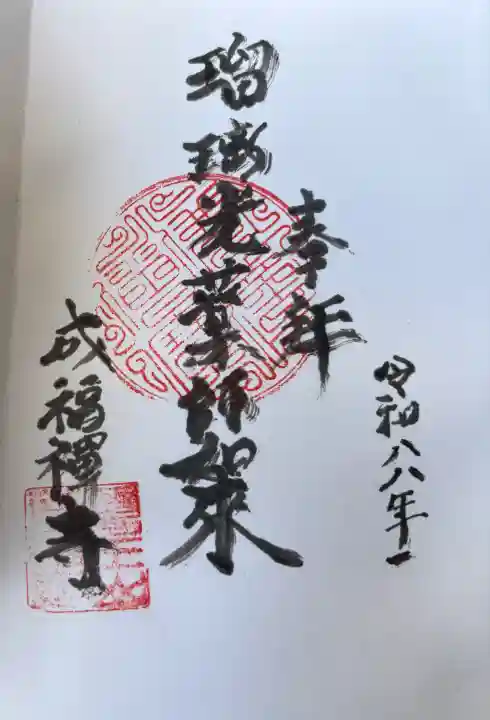 令和八八年一
奉拝
瑠璃光薬師如来
成福禅寺